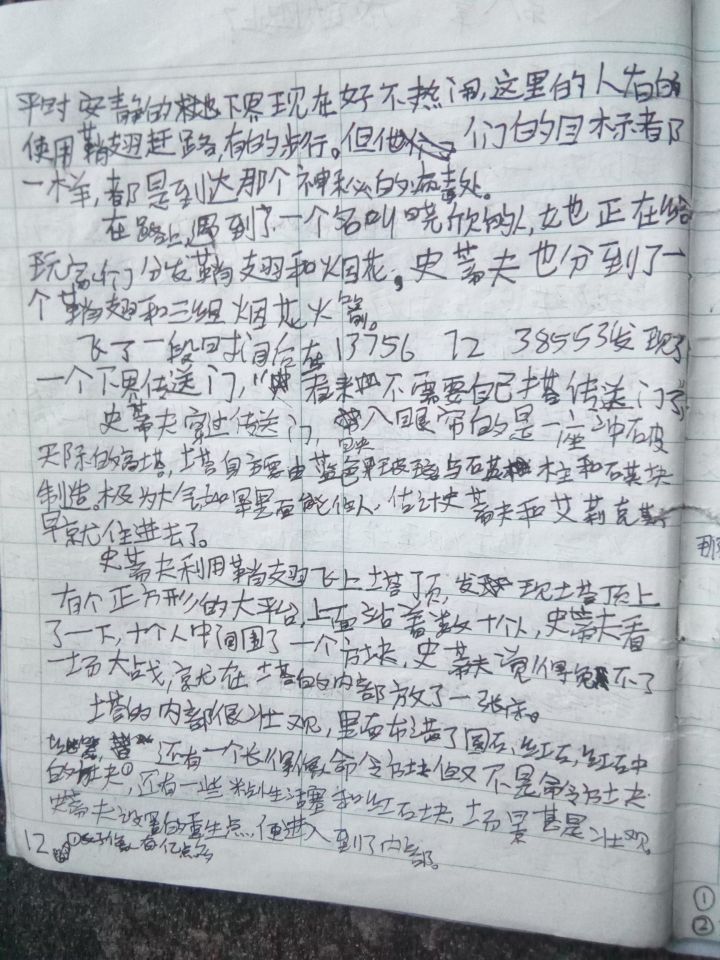 平时安静的地下界现在好不热闹,这里的人有的
使用鞘翅赶路,有的步行。但他们的目标都
一样,都是到达那个神秘的病毒处。
在路上,遇到了一个名叫晓欣的人,她正在给
玩家们分发鞘翅和烟花,史蒂夫也分到了一
个鞘翅和三组烟花火箭。
飞了一段时间后在13756 72 38553发现了
一个下界传送门,"看来不需要自己搭传送门了
史蒂夫穿过传送门,映入眼帘的是一座冲破
天际的高塔,塔身主要由蓝色玻璃与石英柱和石英块
制造。极为大气如果里面能住人,估计史蒂夫和艾莉克斯
早就住进去了。
史蒂夫利用鞘翅飞上塔顶,发现塔顶上
有个正方形的大平台,上面站着数十个人,史蒂夫看
了一下,十个人中间围了一个方块,史蒂夫觉得免不了
一场大战,就在塔的内部放了一张床。
塔的内部很壮观,里面布满了圆石,红石,红石中
还有一个长得像命令方块但又不是命令方块
的方块①,还有一些粘性活塞和红石块,场景甚是壮观。
史蒂夫设置的重生点,便进入到了内部。
12
①
②